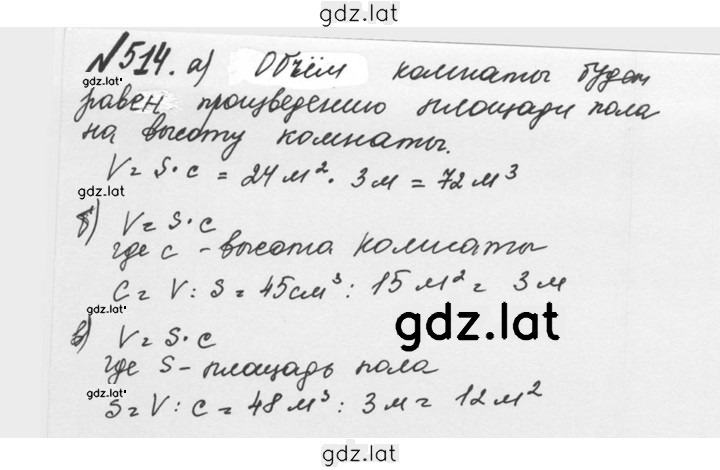 gdz.lat
№514. а) Объём комнаты будет
gdz.lat
равен произведению площади пола
на высоту комнаты.
V = S · c = 24 м². 3 м = 72 м³
gdz.lat
б) V = S · c
где c - высота комнаты
c = V : S = 45 см³ : 15 м² = 3 м
gdz.lat
gdz.lat
в) V = S · c
где S - площадь пола
S = V : c = 48 м³ : 3 м = 12 м²
gdz.lat